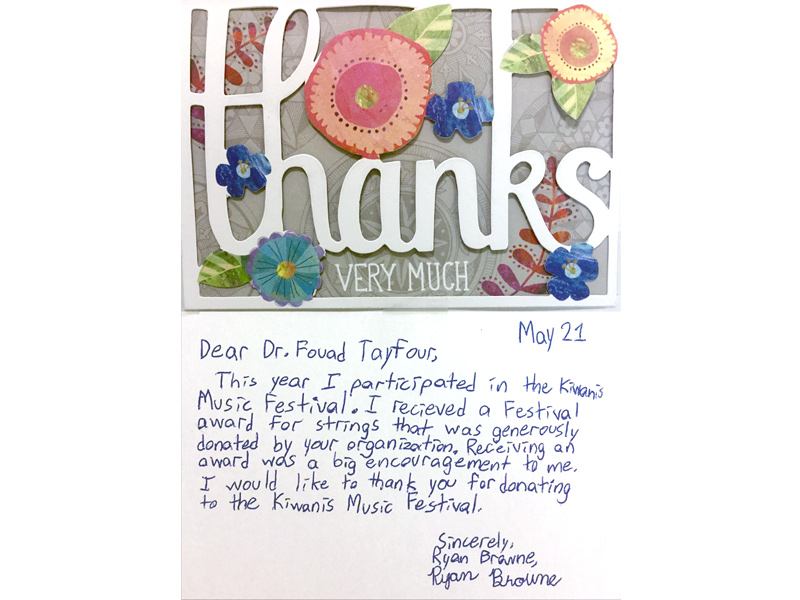 thanks
VERY MUCH
May 21
Dear Dr. Fouad Tayfour,
This year I participated in the Kiwanis
Music Festival. I recieved a Festival
award for strings that was generously
donated by your organization. Receiving an
award was a big encouragement to me.
I would like to thank you for donating
to the Kiwanis Music Festival.
Sincerely,
Ryan Browne,
Ryan Browne